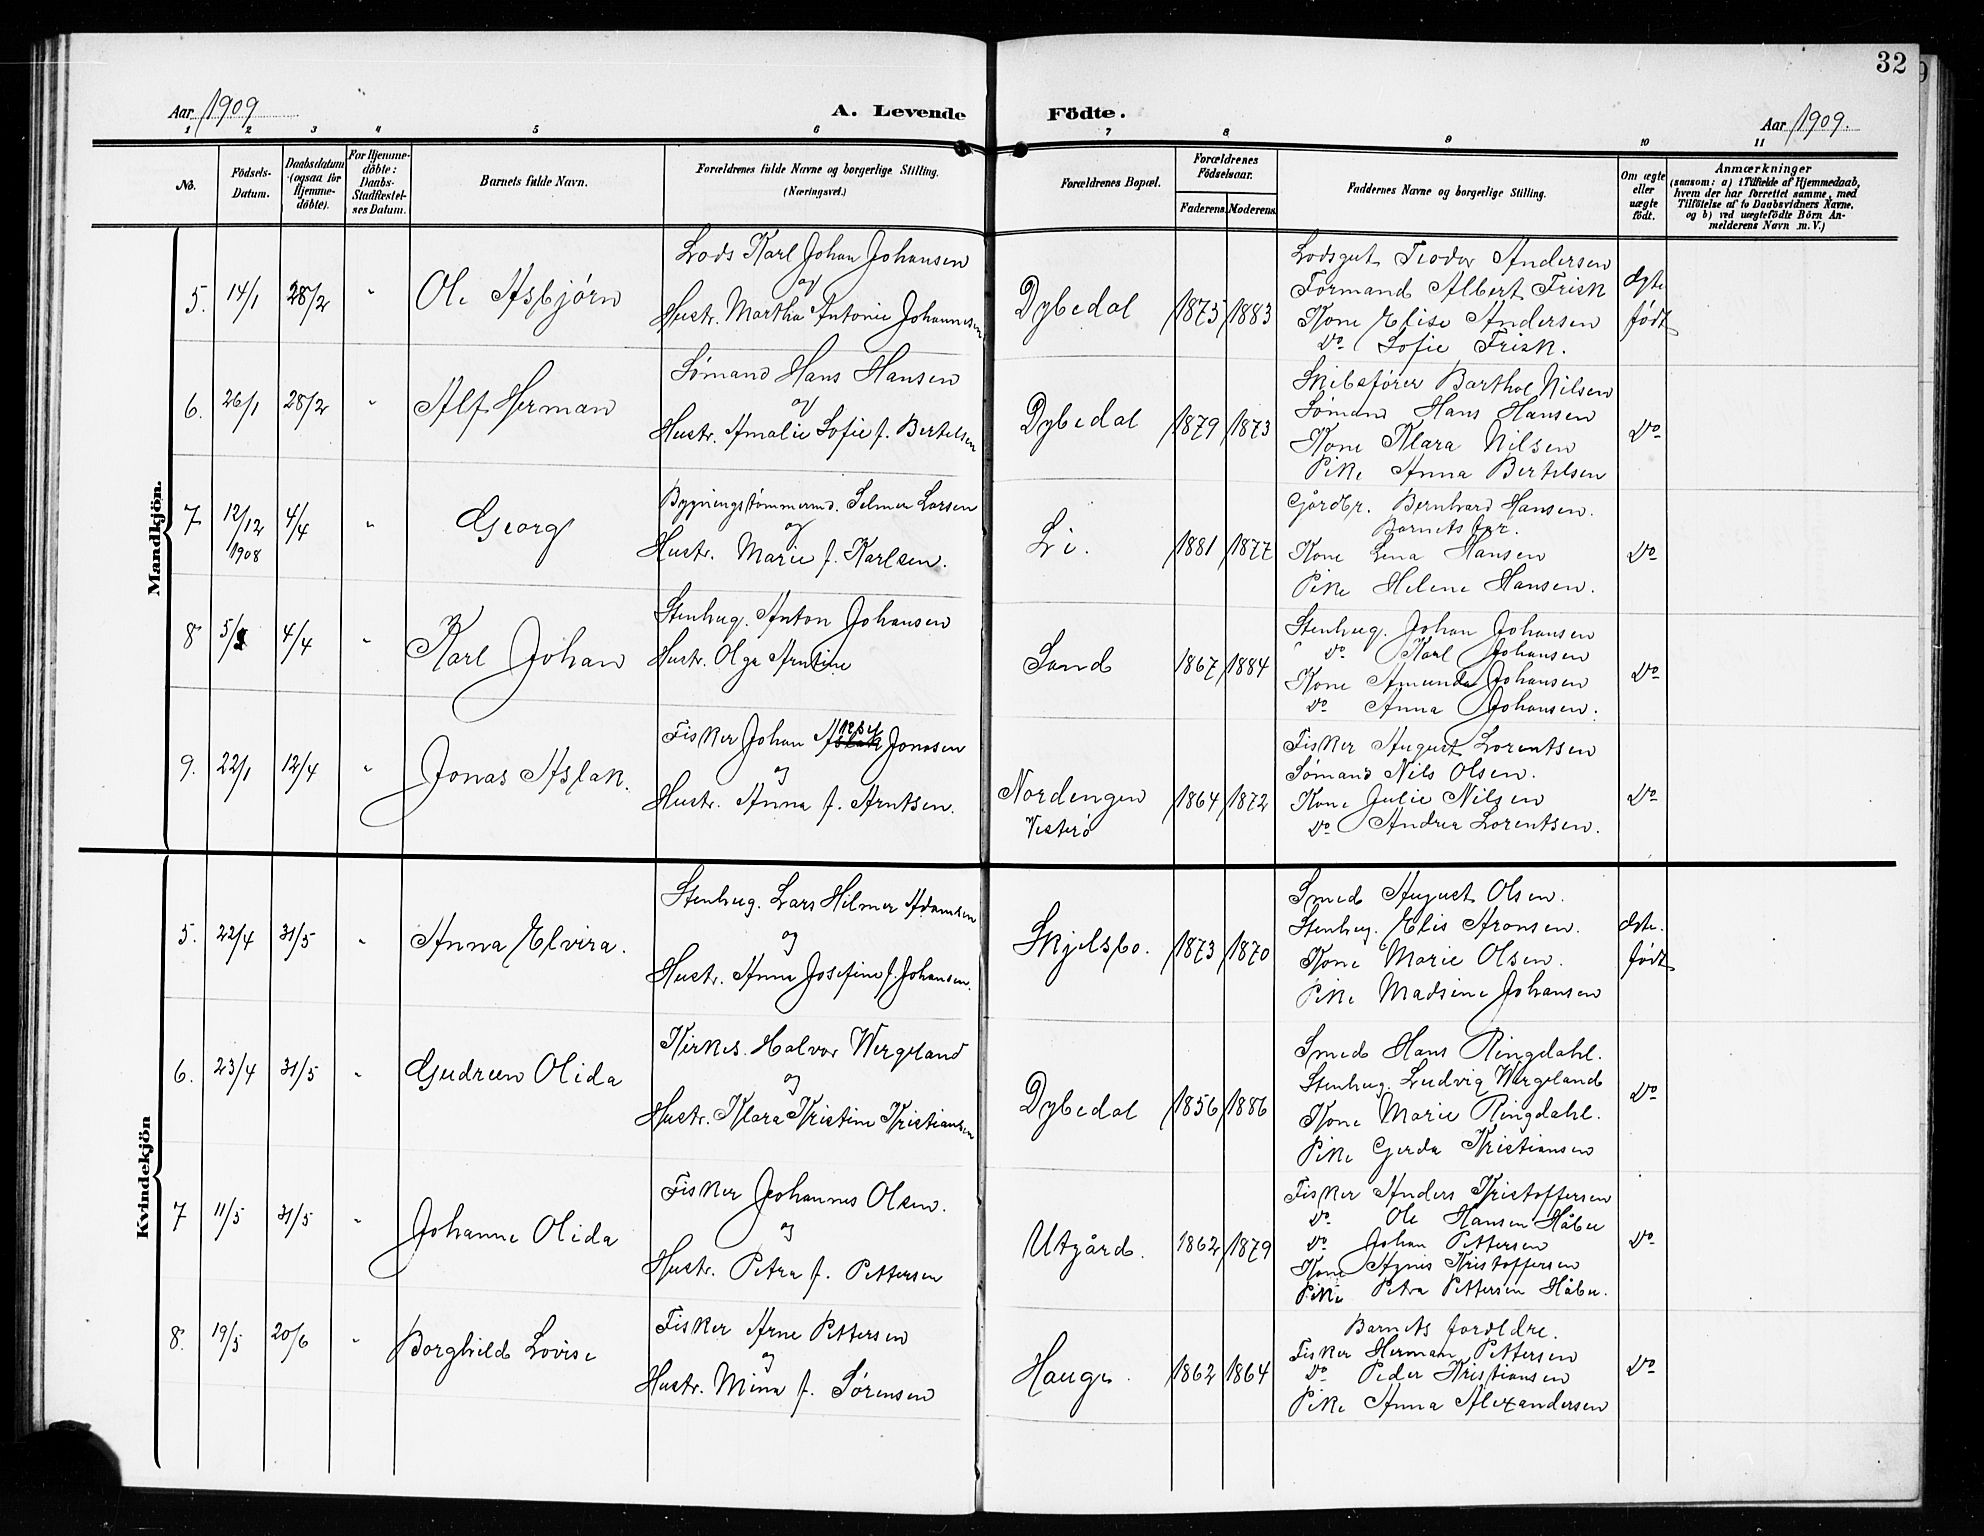 32
Aar 1909
A. Levende Födte.
Aar 1909.
1 2 3 4 5 6 7 8 9 10 11
No.
Födsels-Datum.
Daabsdatum (ogsaa for Hjemmedöbte).
For Hjemmedöbte: Daabs-Stadfæstelses Datum.
Barnets fulde Navn.
Forældrenes fulde Navne og borgerlige Stilling. (Næringsvei.)
Forældrenes Bopæl.
Forældrenes Födselsaar.
Faderens. Moderens.
Faddernes Navne og borgerlige Stilling.
Om ægte eller uægte födt.
Anmærkninger
(saasom: a) i Tilfælde af Hjemmedaab,
hvem der har forrettet samme, med
Tilföielse af to Daabsvidners Navne.
og b) ved uægtefödte Börn An-
melderens Navn m. V.)
Mandkjön.
5. 14/1 28/2 " Ole Asbjørn
Lods Karl Johan Johansen
og
Hustr. Martha Antonie Johannesen
Dybedal 1875 1883
Lodsgut Teodor Andersen
Formand Albert Frisk
Kone Elise Andersen
Do Sofie Frisk.
Ægte født
6. 26/1 28/2 " Alf Herman
Sømand Hans Hansen
og
Hustr. Amalie Sofie f. Bertelsen
Dybedal 1879 1873
Skibsfører Barthol Nilsen
Sømand Hans Hansen
Kone Klara Nilsen
Pike Anna Bertelsen
Do
7 12/12 1908 4/4 " Georg
Bygningstømmermd. Selmer Larsen
og
Hustr. Marie f. Karlsen.
Li. 1881 1877
Gårdbr. Bernhard Hansen.
Barnets far.
Kone Lena Hansen
Pike Helene Hansen.
Do
8 4/4 " Karl Johan
Stenhug. Anton Johansen
Hustr. Olga Arntine
Sand 1867 1884
Stenhug. Johan Johansen
Do Karl Johansen
Kone Amunda Johansen
Do Anna Johansen.
Do
9. 22/1 12/4 " Jonas Aslak.
Fisker Johan Jonasen
og
Hustr. Anna f. Arntsen.
Nordengen
Vesterø
1864 1872
Fisker August Lorentsen
Sømand Nils Olsen.
Kone Julie Nilsen
Do Andrea Lorentsen.
Do
Kvindekjön
5. 22/4 31/5 " Anna Elvira.
Stenhug. Lars Hilmer Adamsen
og
Hustr. Anna Josefine f. Johansen.
Skjelsbo. 1873 1870
Smed August Olsen.
Stenhug. Elis Aronsen.
Kone Marie Olsen.
Pike Madsine Johansen
Ægte født
6. 23/4 31/5 " Gudrun Olida
Kirkes. Halvor Wergeland
og
Hustr. Klara Kristine Kristiansen
Dybedal 1856 1886
Smed Hans Ringdahl.
Stenhug. Ludvig Wergeland
Kone Marie Ringdahl.
Pike Gerda Kristiansen
Do
7 11/5 31/5 " Johanne Olida
Fisker Johannes Olsen.
og
Hustr. Petra f. Pettersen
Utgård. 1862 1879
Fisker Anders Kristoffersen
Do Ole Hansen Håbu
Do Johan Pettersen
Kone Agnes Kristoffersen
Pike Petra Pettersen Håbu.
Do
8. 19/5 20/6 " Borghild Lovise
Fisker Arne Pettersen
og
Hustr. Mina f. Sørensen
Hauge. 1862 1864
Barnets forældre.
Fisker Herman Pettersen
Do Peder Kristiansen
Pike Anna Alexandersen
Do